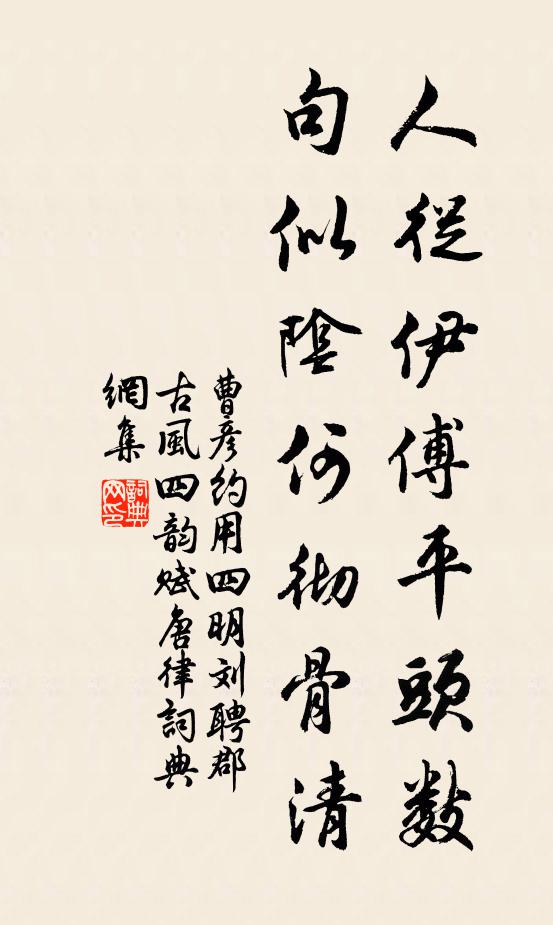 人從伊傅平頭數
句似陰何彻骨清
曹彦約用四明刘聘郡
古風四韵赋唐律詞典
網集
詞典
网印